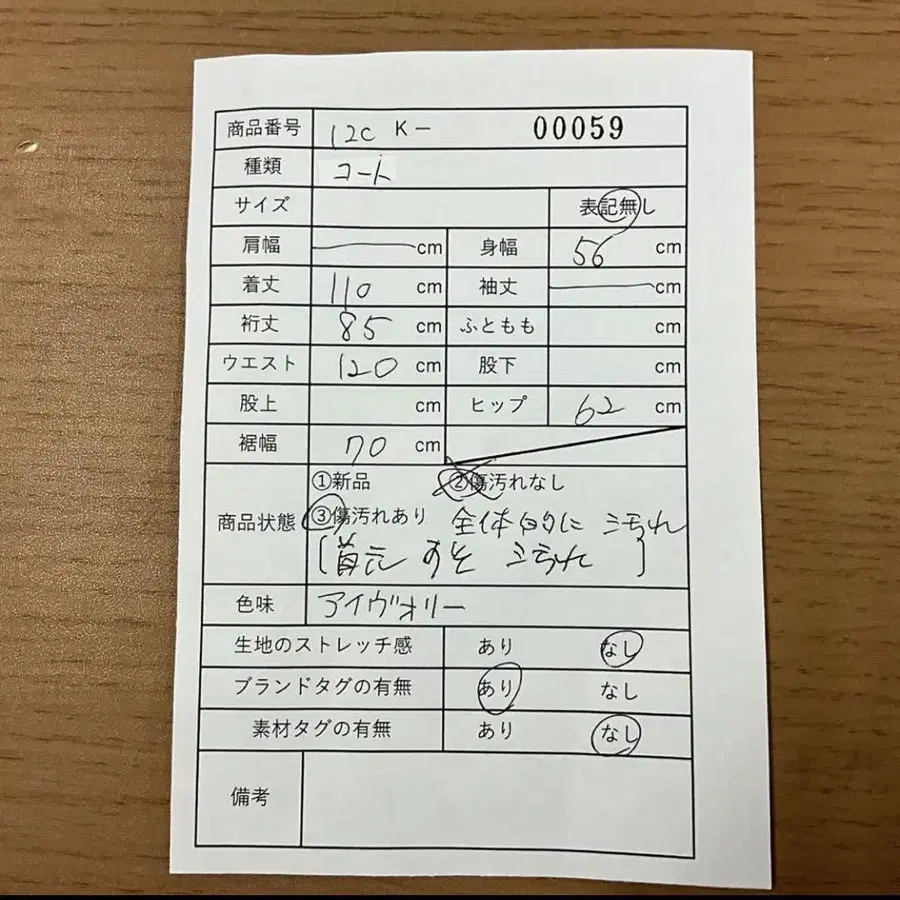 商品番号 12C K− 00059
種類 コート
サイズ 表記無し
肩幅 cm 身幅 56 cm
着丈 110 cm 袖丈 cm
裄丈 85 cm ふともも cm
ウエスト 120 cm 股下 cm
股上 cm ヒップ 62 cm
裾幅 70 cm
①新品 ②傷汚れなし
商品状態 ③傷汚れあり 全体的に ミ汚れ
[首元 すそ ミ汚れ]
色味 アイヴォリー
生地のストレッチ感 あり なし
ブランドタグの有無 あり なし
素材タグの有無 あり なし
備考